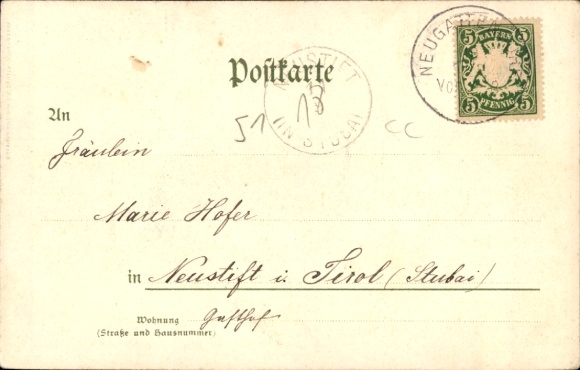 Postkarte
NEUSTIFT
IN STUBAI
BAYERN
5 5
5 PFENNIG 5
51
An
Fräulein
Marie Hofer
in Neustift i. Tirol (Stubai)
Wohnung Gasthof
(Straße und Hausnummer)